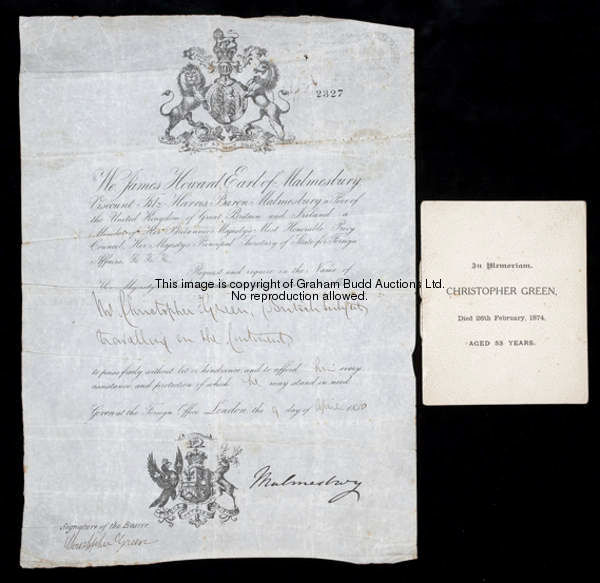 2327
We James Howard Earl of Malmesbury,
Viscount Fitz-Harris Baron Malmesbury a Peer of
the United Kingdom of Great Britain and Ireland a
Member of Her Britannic Majesty's Most Honorable Privy
Council, Her Majesty's Principal Secretary of State for Foreign
Affairs. &c. &c. &c.
Request and require in the Name of
Her Majesty
This image is copyright of Graham Budd Auctions Ltd.
No reproduction allowed.
Mr. Christopher Green, British subject
travelling on the Continent
to pass freely without let or hindrance, and to afford him every
assistance and protection of which he may stand in need.
Given at the Foreign Office, London, the 9 day of April
Malmesbury
Signature of the Bearer
Christopher Green
In Memoriam.
CHRISTOPHER GREEN,
Died 26th February, 1874,
AGED 53 YEARS.